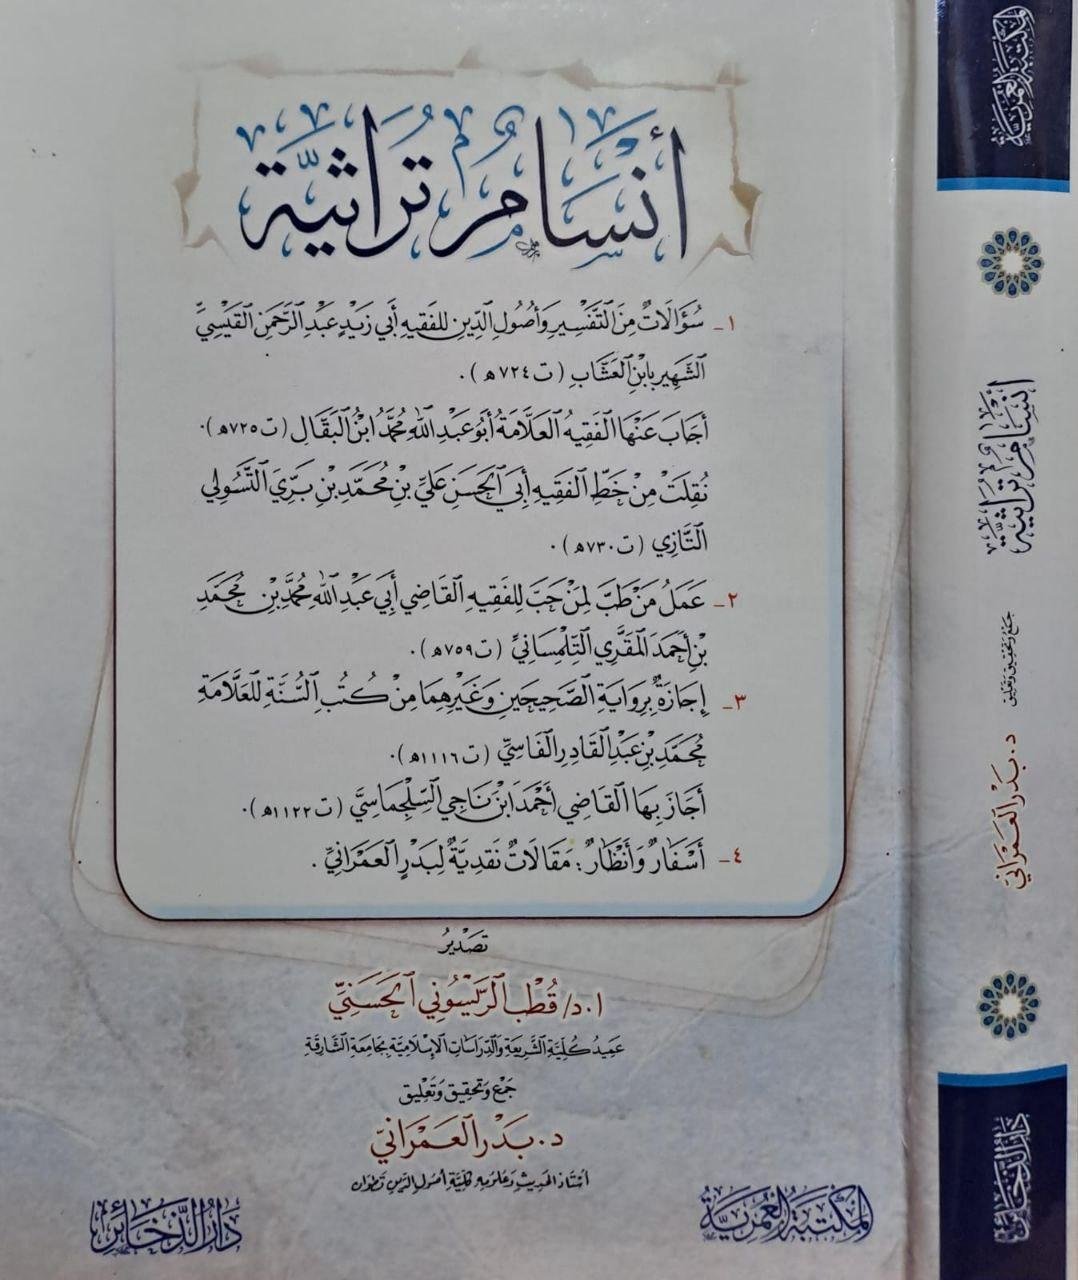 أنسام تراثية
١- سُؤَالَاتٌ مِنَ التَّفْسِيرِ وَأُصُولِ الدِّينِ للفَقِيهِ أَبِي زَيْدٍ عَبْدِ الرَّحْمَنِ القَيْسِيِّ
الشَّهِيرِ بِابْنِ العَشَّابِ (ت٧٢٤ه).
أَجَابَ عَنْهَا الفَقِيهُ العَلَّامَةُ أَبُو عَبْدِ اللَّهِ مُحَمَّدُ ابْنُ البَقَّالِ (ت٧٢٥ه).
نُقِلَتْ مِنْ خَطِّ الفَقِيهِ أَبِي الحَسَنِ عَلِيِّ بْنِ مُحَمَّدِ بْنِ بَرِّيِّ التَّسُولِي
التَّازِي (ت٧٣٠ه).
٢- عَمَلُ مَنْ طَبَّ لِمَنْ حَبَّ لِلفَقِيهِ القَاضِي أَبِي عَبْدِ اللَّهِ مُحَمَّدِ بْنِ مُحَمَّدِ
بْنِ أَحْمَدَ المَقَّرِي التِّلِمْسَانِيِّ (ت٧٥٩ه).
٣- إِجَازَةٌ بِرِوَايَةِ الصَّحِيحَيْنِ وَغَيْرِهِمَا مِنْ كُتُبِ السُّنَّةِ لِلعَلَّامَةِ
مُحَمَّدِ بْنِ عَبْدِ القَادِرِ الفَاسِيِّ (ت١١١٦ه).
أَجَازَ بِهَا القَاضِي أَحْمَدَ ابْنَ نَاجِي السِّلِجْمَاسِيَّ (ت١١٢٢ه).
٤- أَسْفَارٌ وَأَنْظَارٌ: مَقَالَاتٌ نَقْدِيَّةٌ لِبَدْرٍ العَمْرَانِيِّ.
تَصْدِيرُ
ا.د/ قُطْب الرَّيْسُونِي الحَسَنِيّ
عَمِيدُ كُلِيَّةِ الشَّرِيعَةِ وَالدِّرَاسَاتِ الإِسْلَامِيَّةِ بِجَامِعَةِ الشَّارِقَةِ
جَمْع وَتَحْقِيق وَتَعْلِيق
د. بَدْر العَمْرَانِيّ
أستاذ الحديث وعلومه كلية أصول الدين تطوان
المكتبة العمرية
دار الذخائر
المكتبة العمرية
أنسام تراثية
جمع وتحقيق وتعليق
د. بَدْر العَمْرَانِيّ
دار الذخائر